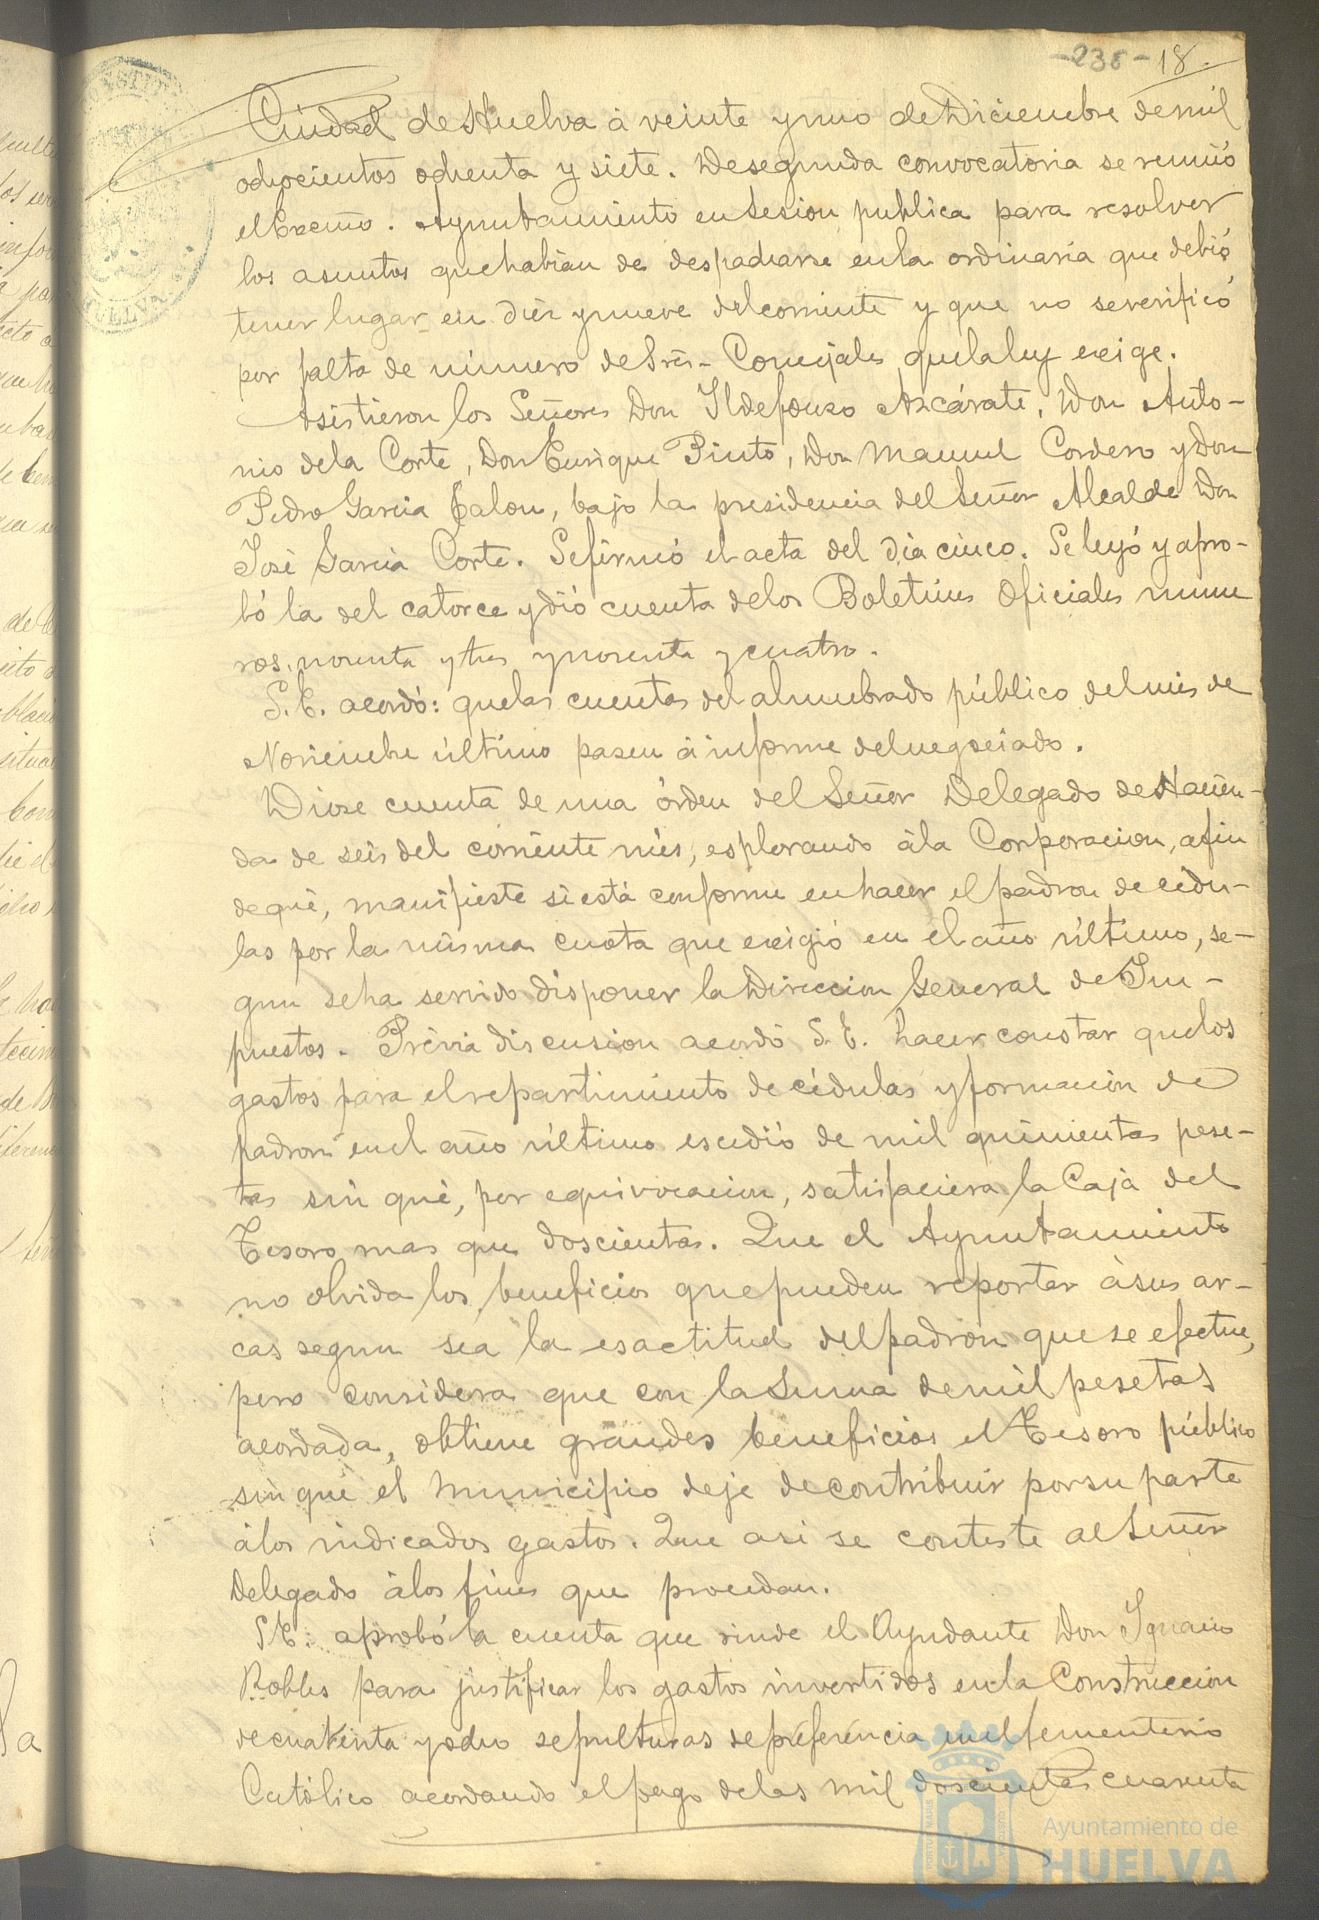 -238- 18.
Ciudad de Huelva á veinte y uno de Diciembre de mil
ochocientos ochenta y siete. De segunda convocatoria se reunió
el Excmo. Ayuntamiento en sesion publica para resolver
los asuntos que habian de despacharse en la ordinaria que debió
tener lugar en diez y nueve del corriente y que no se verificó
por falta de número de Srēs- Concejales que la ley exige.
Asistieron los Señores Don Ildefonso Azcárate, Don Anto-
nio de la Corte, Don Enrique Pinto, Don Manuel Cordero y Don
Pedro Garcia Talon, bajo la presidencia del Señor Alcalde Don
José Garcia Corte. Se firmó el acta del dia cinco. Se leyó y apro-
bó la del catorce y dió cuenta de los Boletines Oficiales nume
ros, noventa y tres y noventa y cuatro.
S.E. acordó: que las cuentas del alumbrado público del mes de
Noviembre último pasen á informe del negociado.
Diose cuenta de una órden del Señor Delegado de Hacien-
da de seis del corriente mes, esplorando á la Corporacion, a fin
de qué, manifieste si está conforme en hacer el padron de cédu-
las por la misma cuota que exigió en el año último, se-
gun se ha servido disponer la Direccion General de Im-
puestos. Prévia discusion acordó S.E. hacer constar que los
gastos para el repartimiento de cédulas y formacion de
padron en el año último escedió de mil quinientas pese-
tas sin qué, por equivocacion, satisfaciera la Caja del
Tesoro mas que doscientas. Que el Ayuntamiento
no olvida los beneficios que pueden reportar á sus ar-
cas segun sea la esactitud del padron que se efectue,
pero considera que con la suma de mil pesetas
acordada, obtiene grandes beneficios el Tesoro público
sin qué el Municipio deje de contribuir por su parte
á los indicados gastos. Que asi se conteste al Señor
Delegado á los fines que procedan.
S.E. aprobó la cuenta que rinde el Ayudante Don Ignacio
Robles para justificar los gastos invertidos en la Construccion
de cuarenta y ocho sepulturas de preferencia en el Cementerio
Católico acordando el pago de las mil doscientas cuarenta
Ayuntamiento de
HUELVA